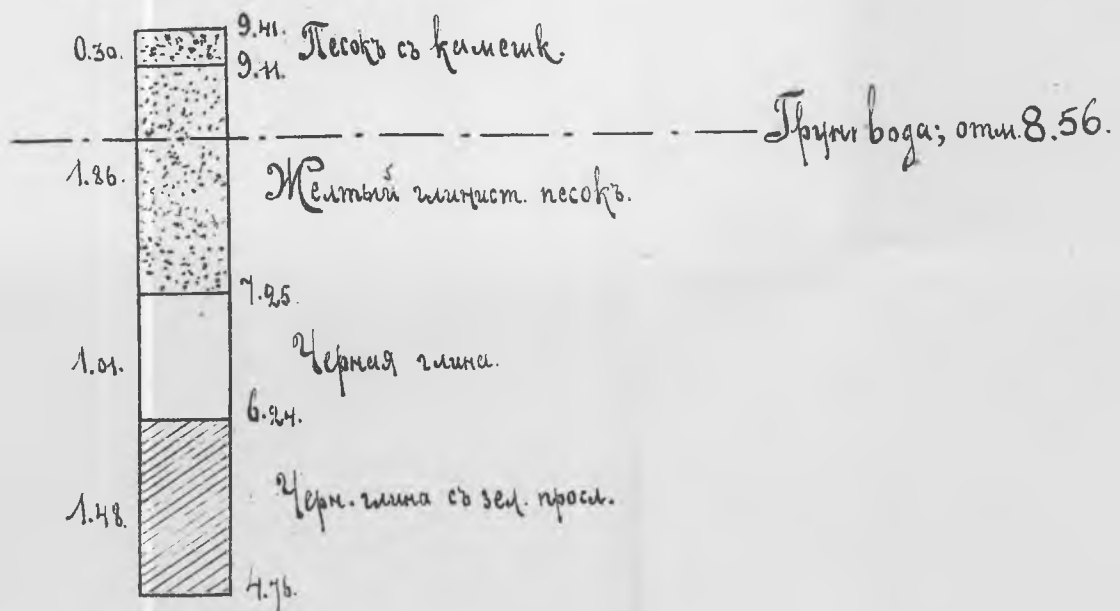 9.41.
0.30. Песокъ съ камешк.
9.11.
Грунт вода; отм. 8.56.
1.86. Желтый глинист. песокъ.
7.25.
1.01. Черная глина.
6.24.
1.48. Черн. глина съ зел. просл.
4.76.